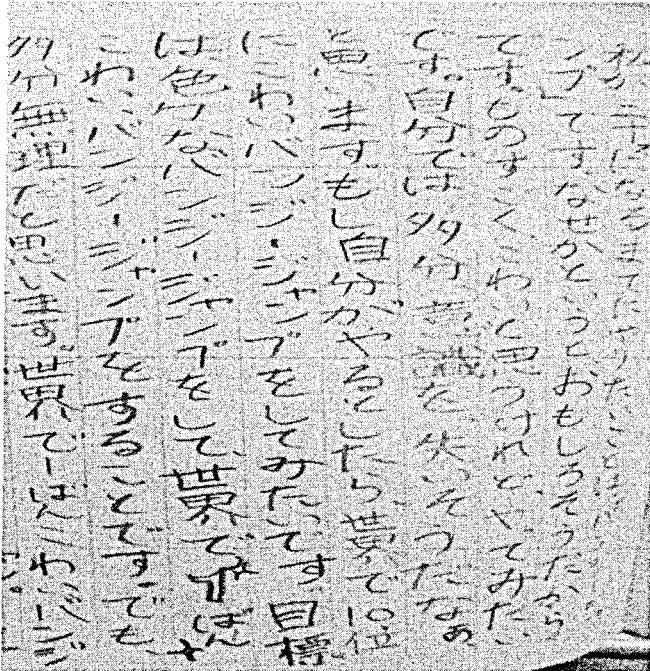 私が二十になるまでにやりたいことは、
ンプです。なぜかというとおもしろそうだから
です。ものすごくこわいと思うけれどやてみたい
です。自分では多分意識を失いそうだなあ
と思います。もし自分がやるとしたら、世界で10位
にこわいバンジージャンプをしてみたいです。目標
は色々なバンジージャンプをして、世界で一ばん
こわいバンジージャンプをすることです。でも、
多分無理だと思います。世界で一ばんこわいバンジ